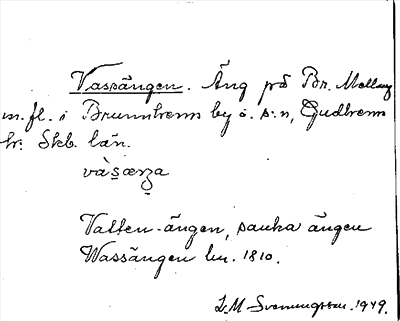 Vassängen. Äng på Br. Mellang
m. fl. i Brunnhem by o. s:n, Gudhems
hr. Skb. län.
và`s̱æŋa
Vatten-ängen, sanka ängen
Wassängen lm. 1810.
L M Svenungsson 1949.